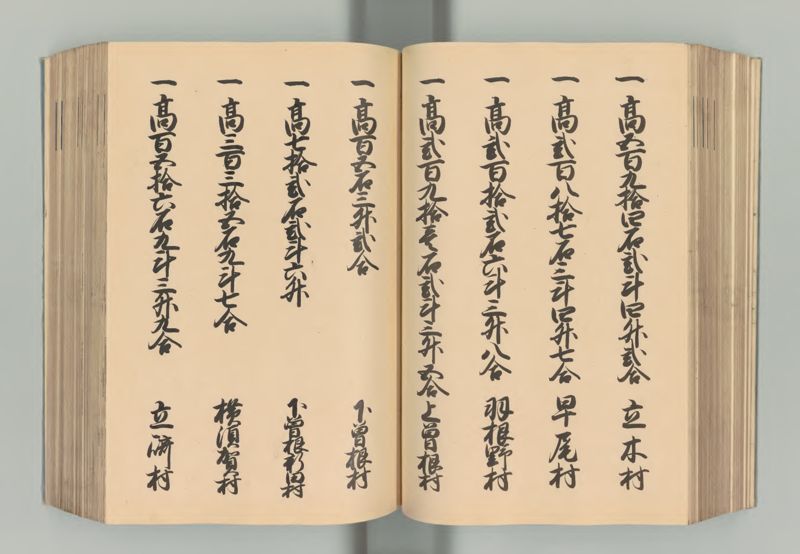 一高五百九拾四石弐斗四升弐合 立木村
一高弐百八拾七石三斗四升七合 早尾村
一高弐百拾弐石六斗三升八合 羽根野村
一高弐百九拾壱石弐斗三升五合 上曽根村
一高百五石三升弐合 下曽根村
一高七拾弐石弐斗六升 下曽根新田村
一高三百三拾五石九斗七合 横須賀村
一高百五拾六石九斗三升九合 立崎村